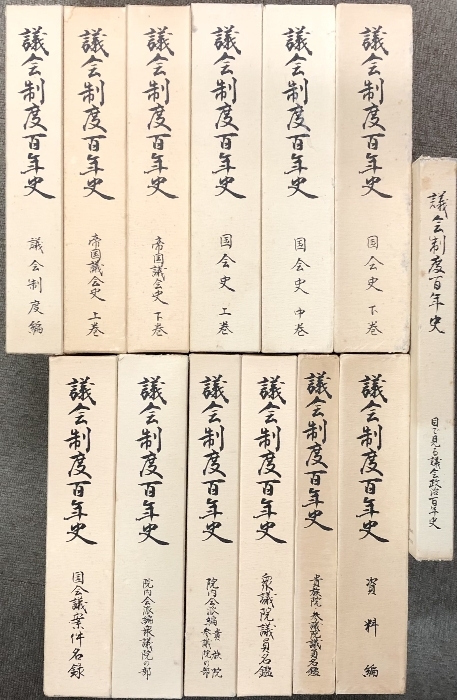 議会制度百年史
議会制度編
議会制度百年史
帝国議会史 上巻
議会制度百年史
帝国議会史 下巻
議会制度百年史
国会史 上巻
議会制度百年史
国会史 中巻
議会制度百年史
国会史 下巻
議会制度百年史
目で見る議会政治百年史
議会制度百年史
国会議案件名録
議会制度百年史
院内会派編衆議院の部
議会制度百年史
院内会派編 貴族院
参議院の部
議会制度百年史
衆議院議員名鑑
議会制度百年史
貴族院 参議院議員名鑑
議会制度百年史
資料編